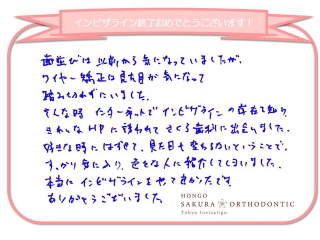 インビザライン終了おめでとうございます！
歯並びは以前から気になっていましたが、
ワイヤー矯正は見た目が気になって
踏み切れずにいました。
そんな時 インターネットでインビザラインの存在を知り、
きれいなHPに誘われてさくら歯科に出会いました。
好きな時にはずせて、見た目も変わらないということで、
すっかり気に入り、色々な人に紹介してしまいました。
本当にインビザラインをやってよかったです。
ありがとうございました。
HONGO
SAKURA ORTHODONTIC
Tokyo Invisalign